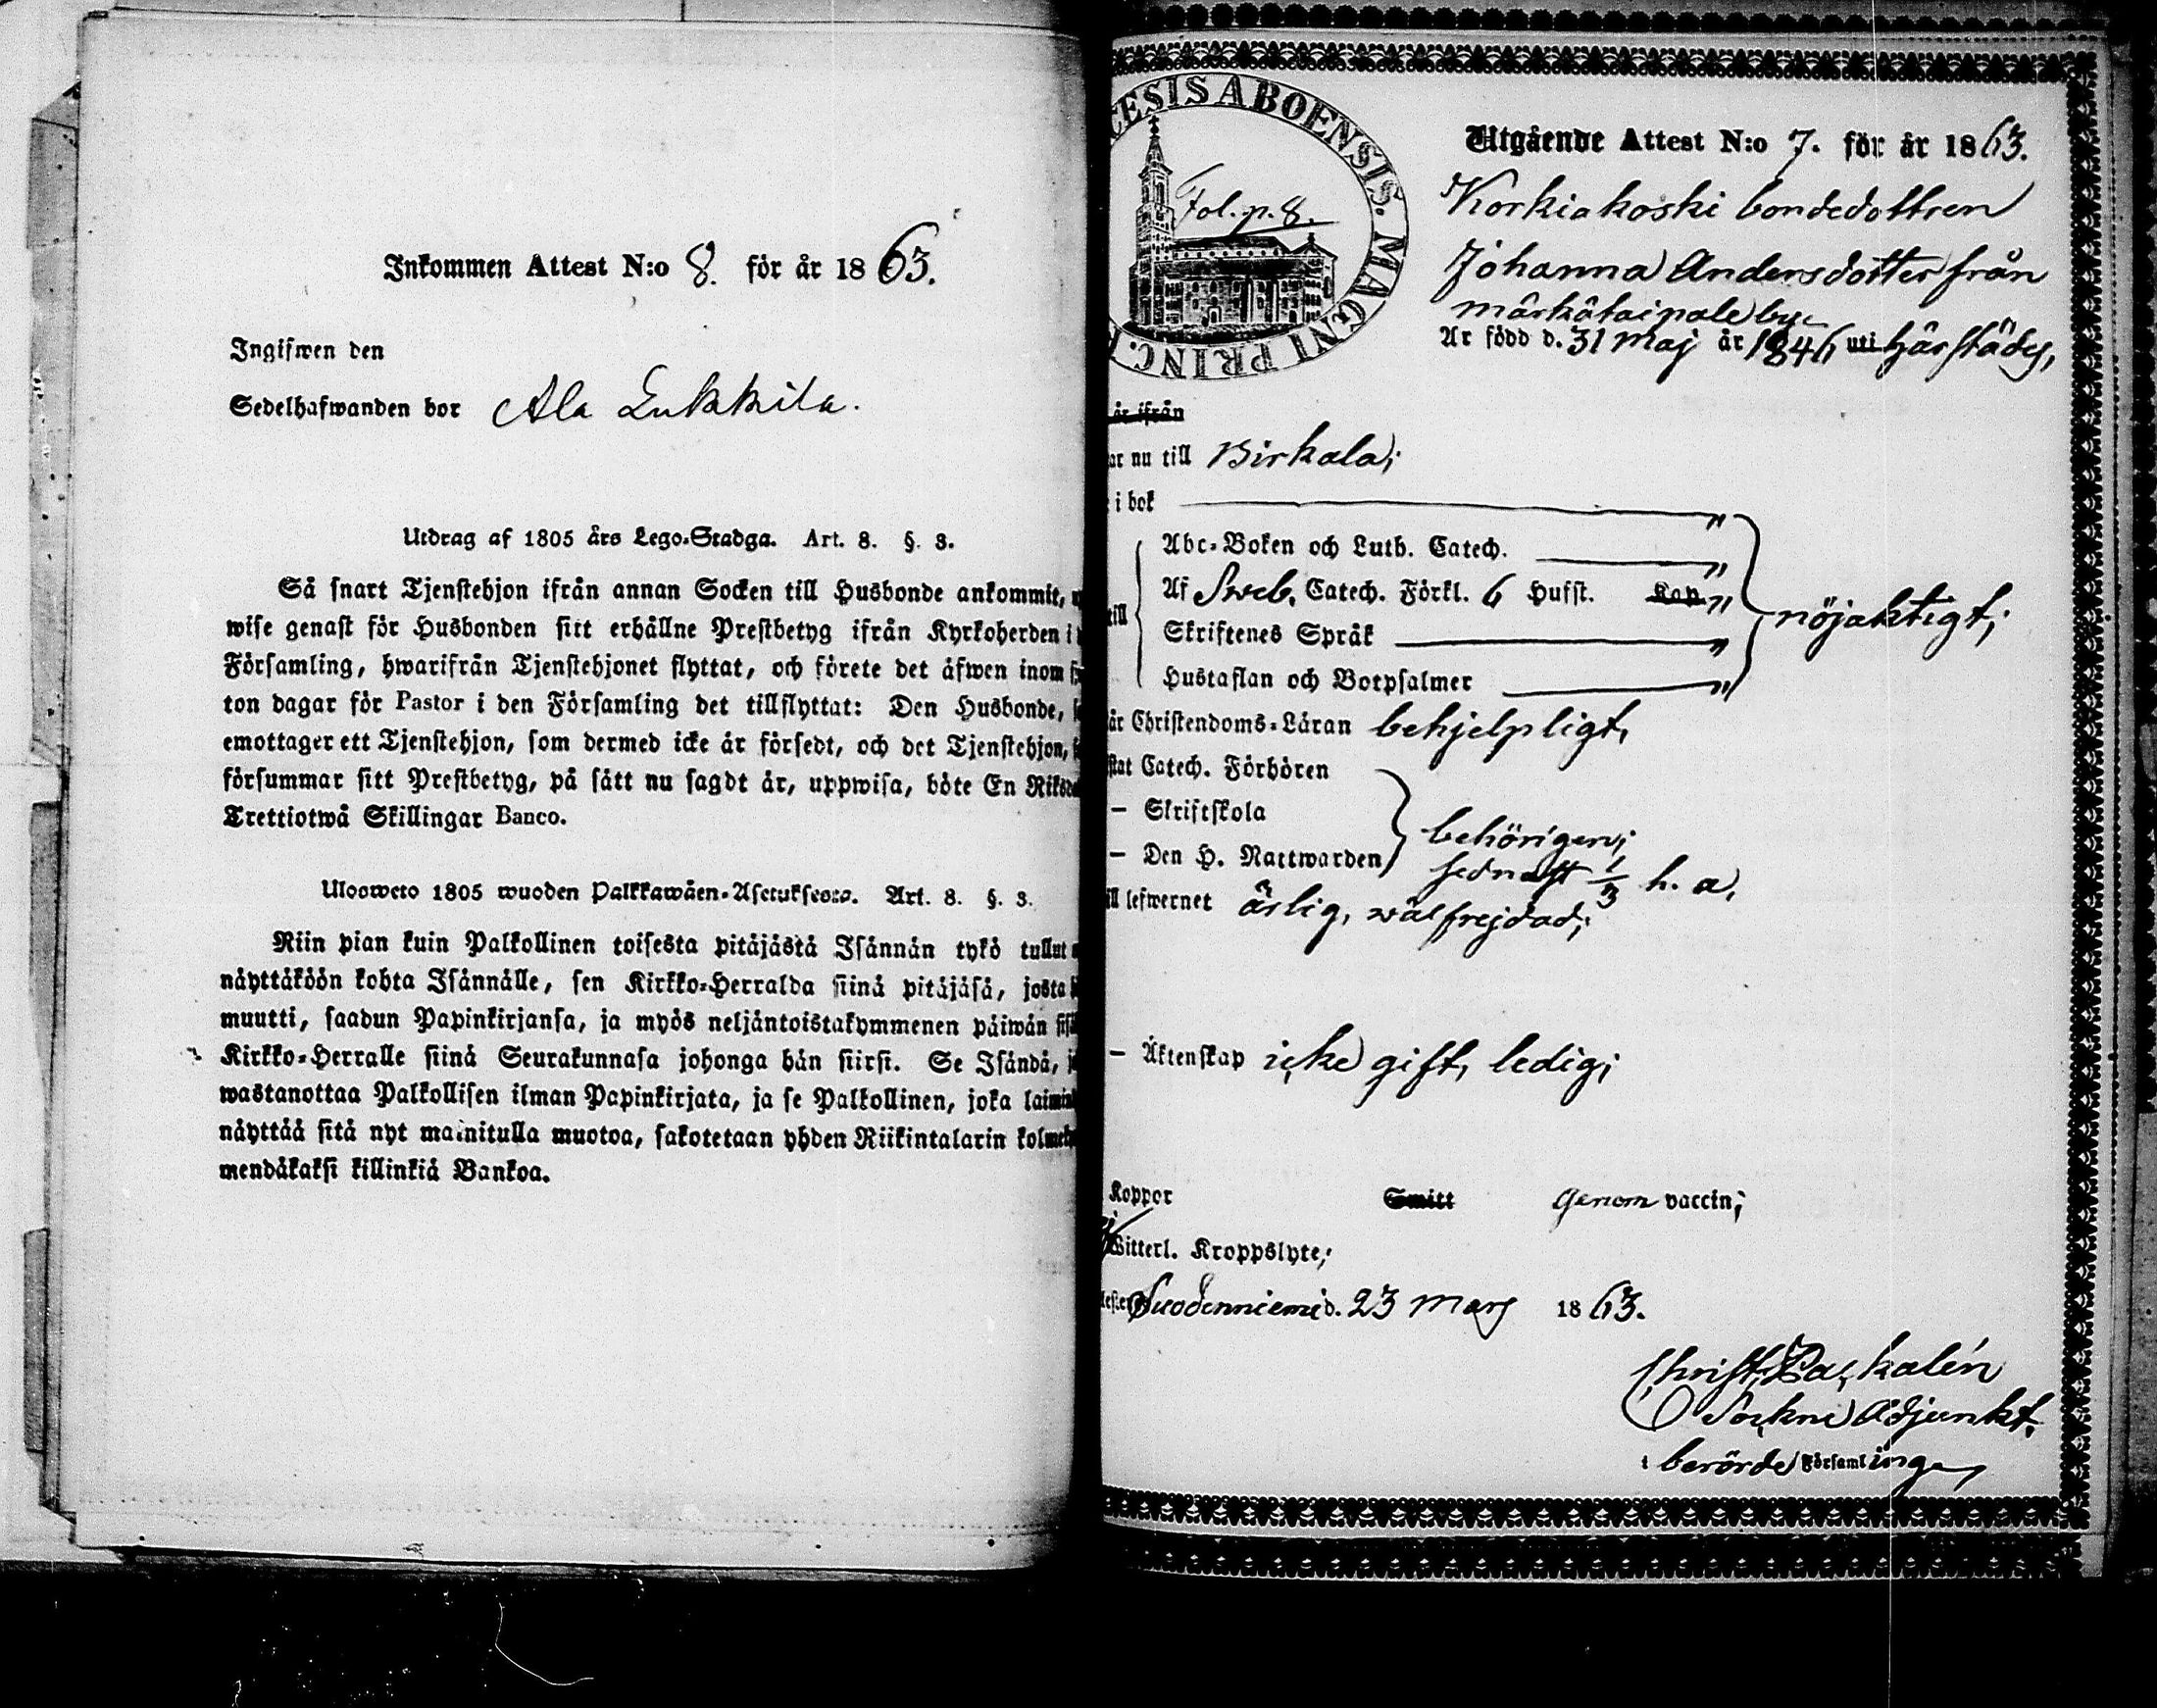 Inkommen Attest N:o 8. för år 1863.
Ingifwen den
Sedelhafwanden bor Ala Lukkila.
Utdrag af 1805 års Lego-Stadga. Art. 8. §. 3.
Så snart Tjenstehjon ifrån annan Socken till Husbonde ankommit,
wise genast för Husbonden sitt erhållne Prestbetyg ifrån Kyrkoherden i
Församling, hwarifrån Tjenstehjonet flyttat, och förete det äfwen inom
ton dagar för Pastor i den Församling det tillflyttat: Den Husbonde,
emottager ett Tjenstehjon, som dermed icke är försedt, och det Tjenstehjon,
försummar sitt Prestbetyg, på sätt nu sagdt är, uppwisa, böte En Riksda
Trettiotwå Skillingar Banco.
Ulosweto 1805 wuoden Palkkawäen-Asetuksesta. Art. 8. §. 3.
Niin pian kuin Palkollinen toisesta pitäjästä Isännän tykö tullut
näyttäköön kohta Isännälle, sen Kirkko-Herralda siinä pitäjäsä, josta
muutti, saadun Papinkirjansa, ja myös neljäntoistakymmenen päiwän sisä
Kirkko-Herralle siinä Seurakunnasa johonga hän siirsi. Se Isändä,
wastanottaa Palkollisen ilman Papinkirjata, ja se Palkollinen, joka laimin
näyttää sitä nyt mainitulla muotoa, sakotetaan yhden Riikintalarin kolmeky
mendäkaksi killinkiä Bankoa.
CESIS ABOENSIS. MAGNI PRINC.
Fol. p. 8.
Utgående Attest N:o 7. för år 1863.
Korkiakoski bondedottren
Johanna Andersdotter från
märkätaipale by.
Är född d. 31 Maj år 1846 uti härstädes,
är ifrån
ar nu till Birkala;
i bok "
Abc-Boken och Luth. Catech. "
till Af Sveb. Catech. Förkl. 6 Hufst. Kap. " nöjaktigt;
Skriftenes Språk "
Hustaflan och Botpsalmer "
år Christendoms-Läran behjelpligt,
stat Catech. Förhören
— Skriftskola
— Den H. Nattwarden behörigen;
sednast 1/3 h. a.
ill lefwernet ärlig, wälfrejdad;
— Äktenskap icke gift, ledig;
Koppor Smitt Genom vaccin;
Witterl. Kroppslyte;
Suodenniemi d. 23 Mars 1863.
Christ. Packalén
Sockne Adjunkt.
i berörde Församlinge,